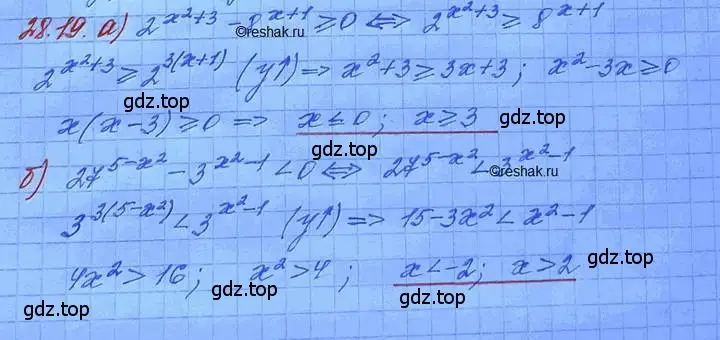 28.19. а) 2^{x²+3} - 8^{x+1} ≥ 0 ⟺ 2^{x²+3} ≥ 8^{x+1}
©reshak.ru
2^{x²+3} ≥ 2^{3(x+1)} (y↑) ⟹ x²+3 ≥ 3x+3; x²-3x ≥ 0
gdz.top
x(x-3) ≥ 0 ⟹ x ≤ 0; x ≥ 3
gdz.top
gdz.top
б) 27^{5-x²} - 3^{x²-1} < 0 ⟺ 27^{5-x²} < 3^{x²-1}
©reshak.ru
gdz.top
3^{3(5-x²)} < 3^{x²-1} (y↑) ⟹ 15-3x² < x²-1
gdz.top
4x² > 16; x² > 4; x < -2; x > 2
gdz.top
gdz.top
gdz.top